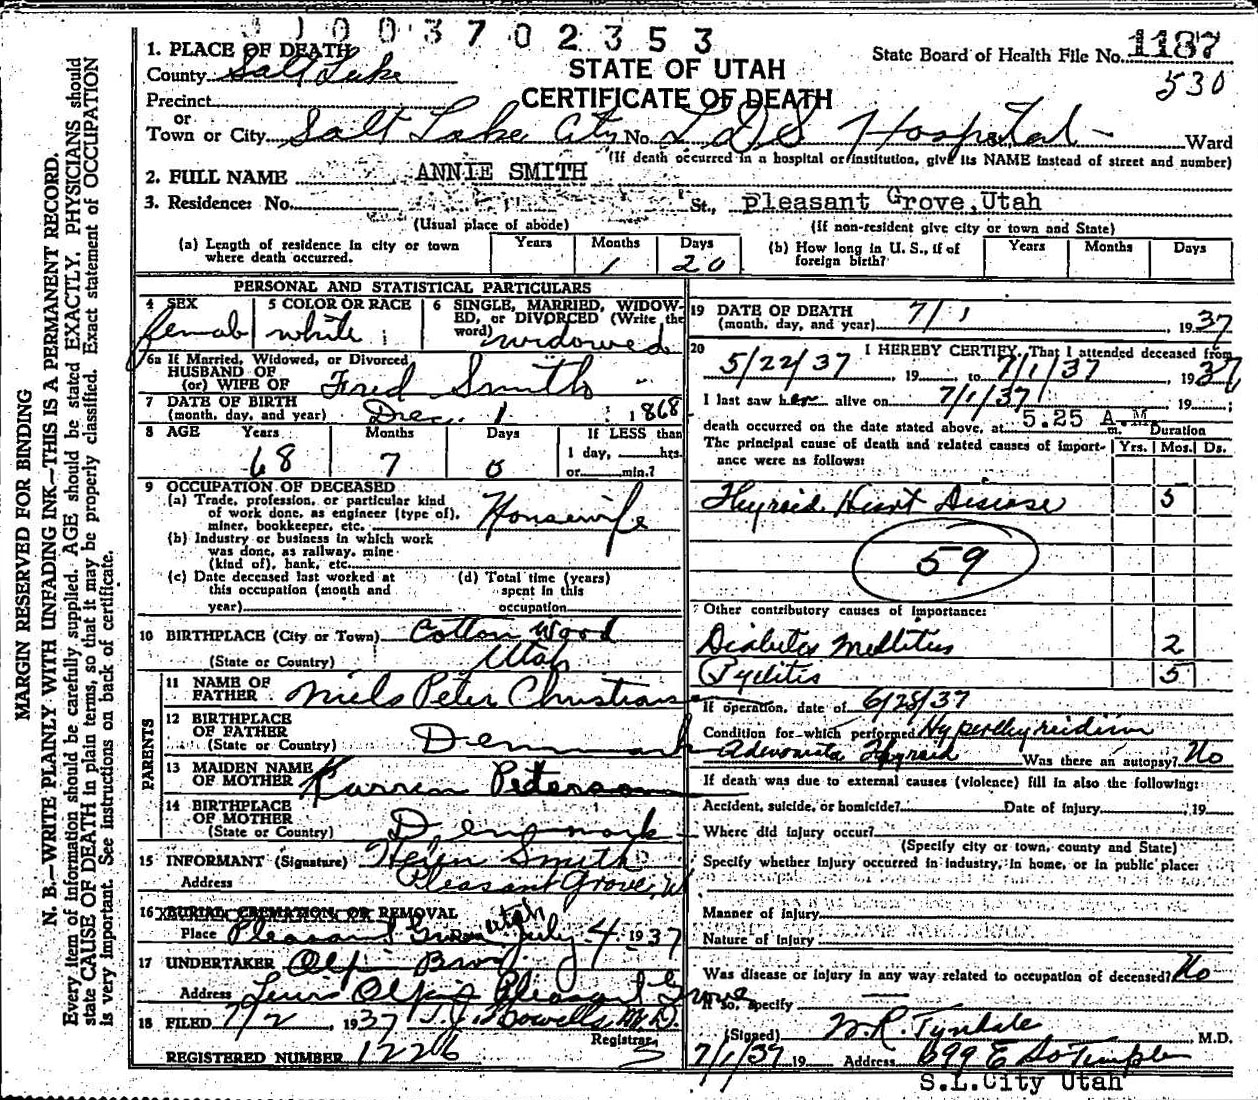 3 7 0 2 3 5 3
1. PLACE OF DEATH
County Salt Lake
STATE OF UTAH
CERTIFICATE OF DEATH
State Board of Health File No. 1187
530
Precinct
or
Town or City Salt Lake City No. LDS Hospital Ward
(If death occurred in a hospital or institution, give its NAME instead of street and number)
2. FULL NAME ANNIE SMITH
3. Residence: No. St., Pleasant Grove, Utah
(Usual place of abode) (If non-resident give city or town and State)
(a) Length of residence in city or town where death occurred. Years Months 1 Days 20
(b) How long in U. S., if of foreign birth? Years Months Days
MARGIN RESERVED FOR BINDING
N. B.—WRITE PLAINLY WITH UNFADING INK—THIS IS A PERMANENT RECORD.
Every item of information should be carefully supplied. AGE should be stated EXACTLY. PHYSICIANS should
state CAUSE OF DEATH in plain terms, so that it may be properly classified. Exact statement of OCCUPATION
is very important. See instructions on back of certificate.
PERSONAL AND STATISTICAL PARTICULARS
4 SEX female
5 COLOR OR RACE white
6 SINGLE, MARRIED, WIDOWED, or DIVORCED (Write the word) widowed
6a If Married, Widowed, or Divorced
HUSBAND OF
(or) WIFE OF Fred Smith
7 DATE OF BIRTH
(month, day, and year) Dec. 1 1868
8 AGE Years 68 Months 7 Days 0 If LESS than 1 day, hrs. or min.?
9 OCCUPATION OF DECEASED
(a) Trade, profession, or particular kind
of work done, as engineer (type of),
miner, bookkeeper, etc. Housewife
(b) Industry or business in which work
was done, as railway, mine
(kind of), bank, etc.
(c) Date deceased last worked at
this occupation (month and
year)
(d) Total time (years)
spent in this
occupation
10 BIRTHPLACE (City or Town) Cotton Wood
(State or Country) Utah
PARENTS
11 NAME OF
FATHER Niels Peter Christians
12 BIRTHPLACE
OF FATHER
(State or Country) Denmark
13 MAIDEN NAME
OF MOTHER Karren Peterson
14 BIRTHPLACE
OF MOTHER
(State or Country) Denmark
15 INFORMANT (Signature) Helen Smith
Address Pleasant Grove, U
16 BURIAL CREMATION OR REMOVAL
Place Pleasant Grove Utah Date July 4 1937
17 UNDERTAKER Olpin Bros
Address Lewis Olpin Pleasant Grove
18 FILED 7/2 1937 M.D.
Registrar
REGISTERED NUMBER 1226
19 DATE OF DEATH
(month, day, and year) 7/1, 1937
20 I HEREBY CERTIFY, That I attended deceased from
5/22/37, 19 to 7/1/37, 1937
I last saw her alive on 7/1/37 19 ;
death occurred on the date stated above, at 5.25 A.M.
The principal cause of death and related causes of importance were as follows:
Duration
Yrs. Mos. Ds.
Thyroid Heart Disease 5
59
Other contributory causes of importance:
Diabetes Mellitus 2
Pyelitis 5
If operation, date of 6/28/37
Condition for which performed Hyperthyroidism
Adenomata Thyroid Was there an autopsy? No
If death was due to external causes (violence) fill in also the following:
Accident, suicide, or homicide? Date of injury , 19
Where did injury occur?
(Specify city or town, county and State)
Specify whether injury occurred in industry, in home, or in public place:
Manner of injury
Nature of injury
Was disease or injury in any way related to occupation of deceased? No
If so, specify
(Signed) W.R. Tyndale M.D.
7/1/37 19 Address 699 E So Temple
S.L.City Utah